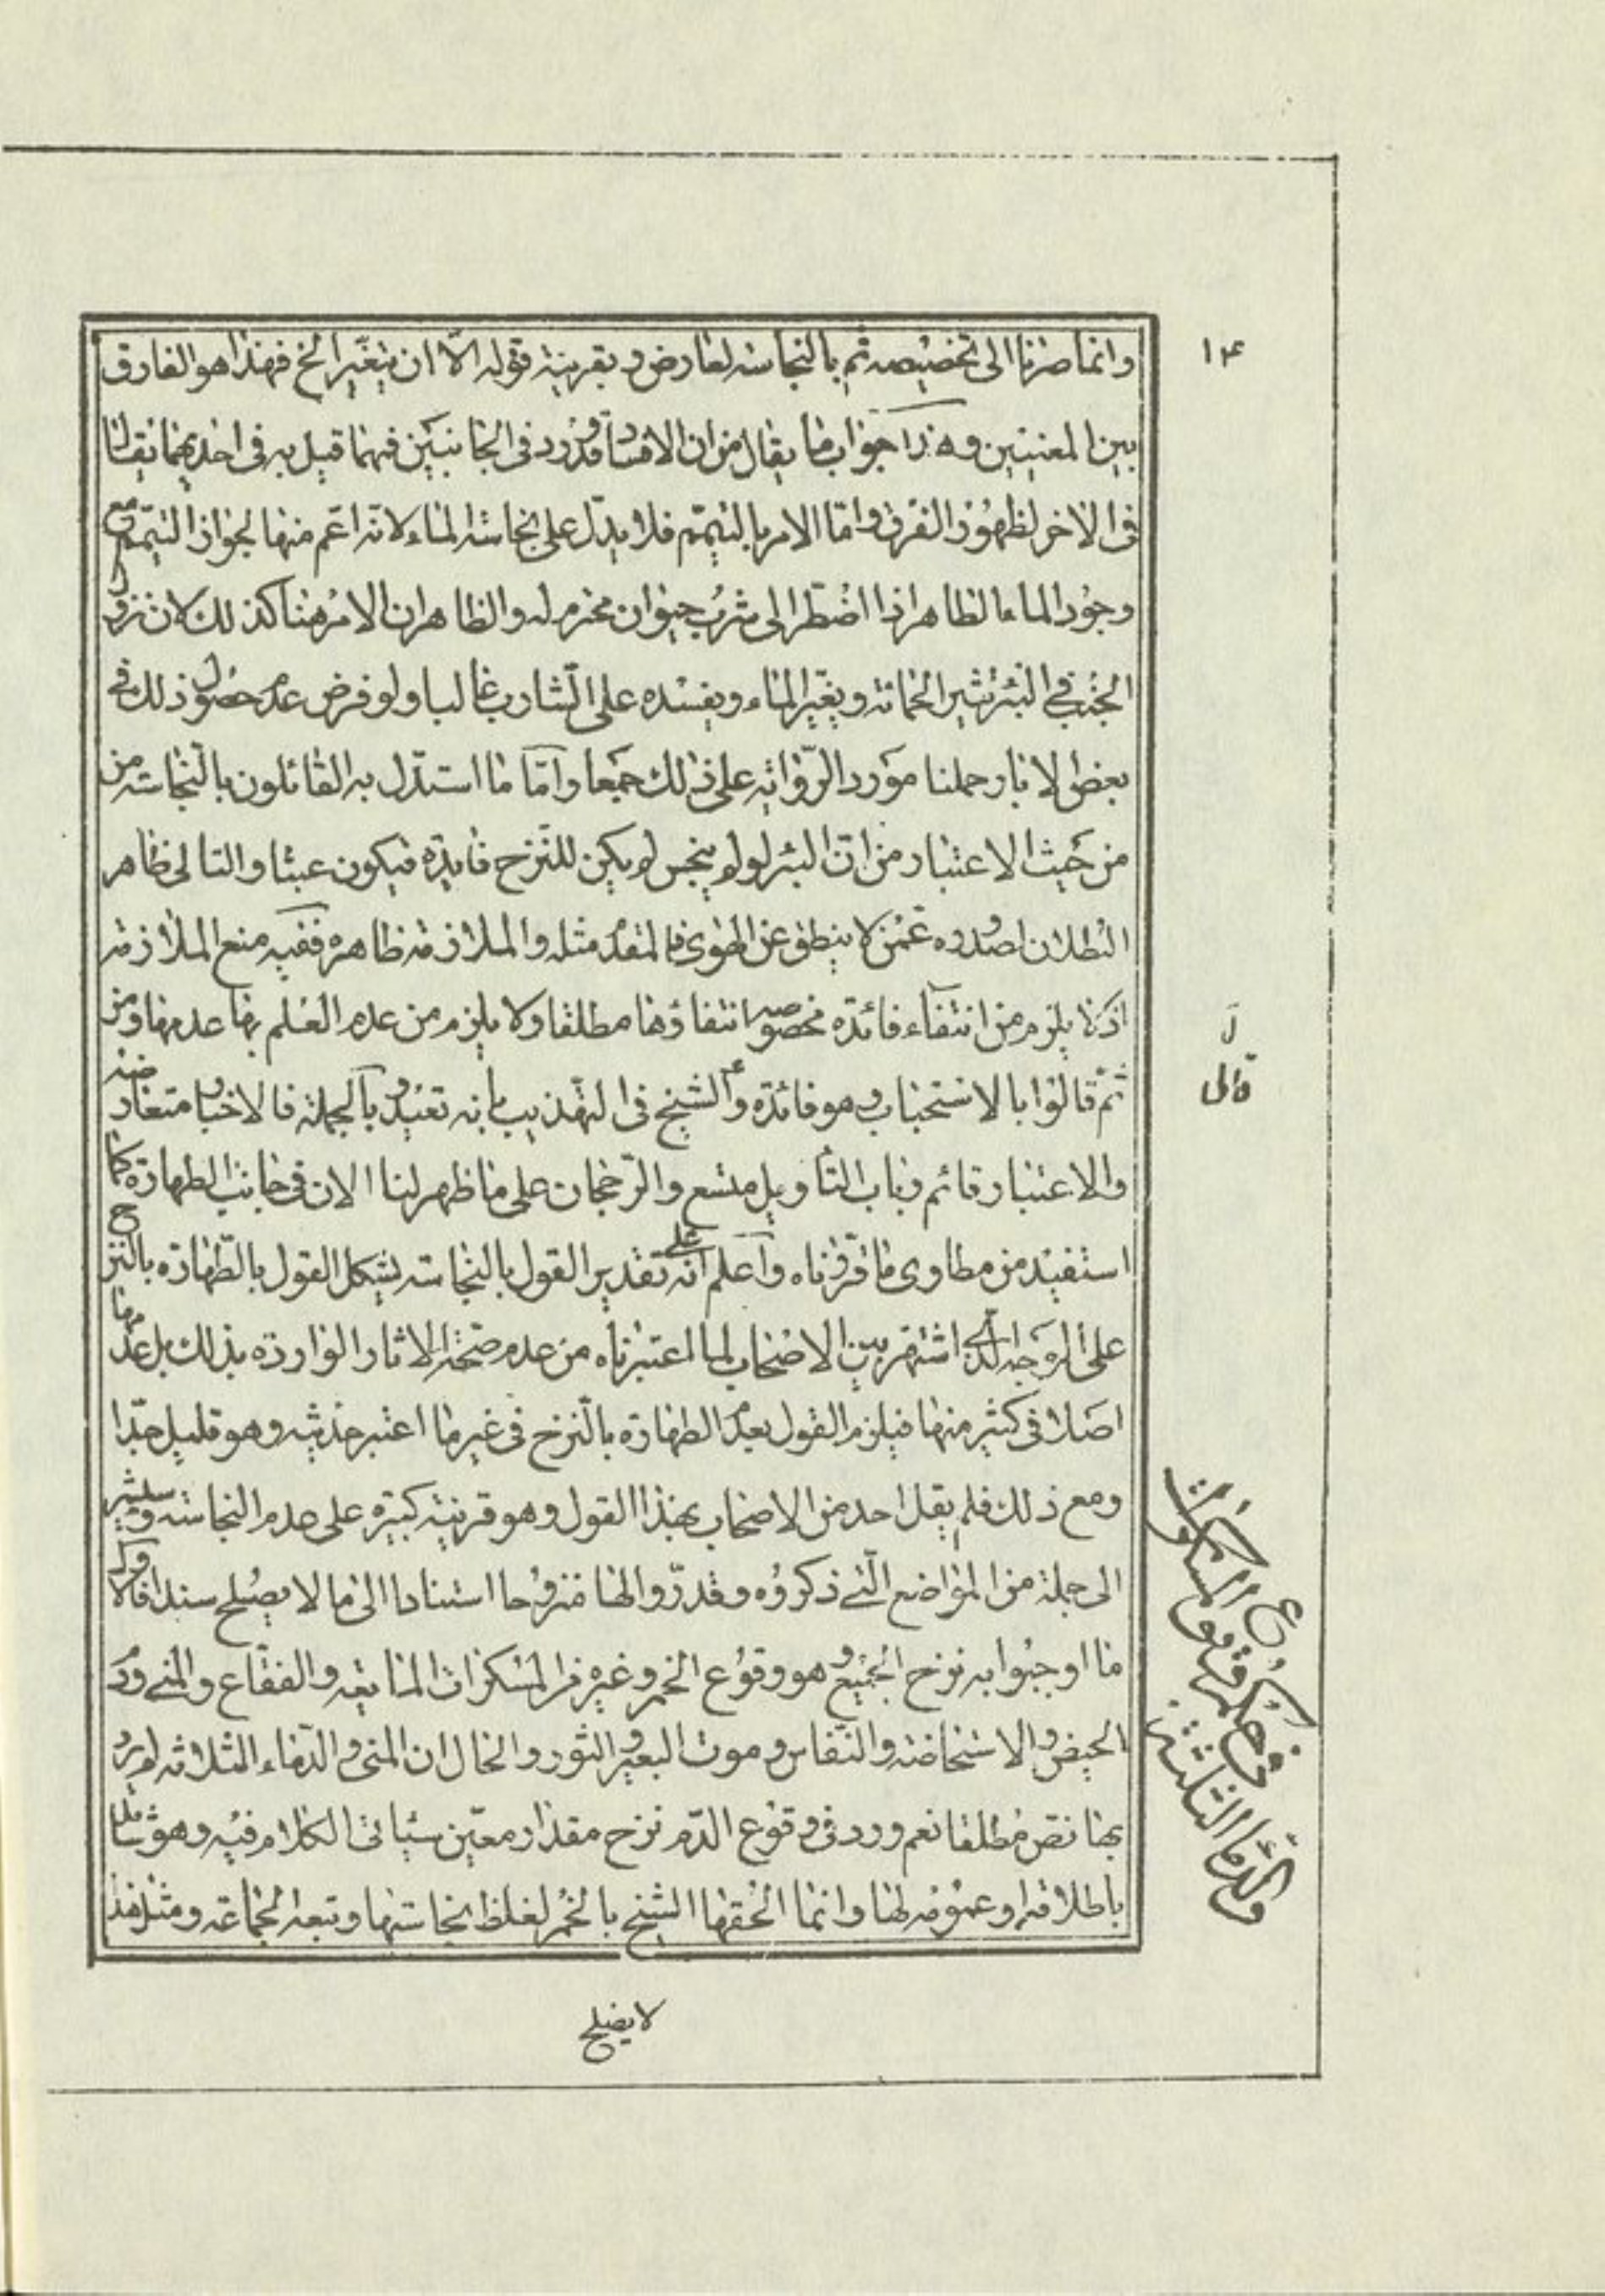 ١٤
وانما صرنا الى تخصيصه ثم بالنجاسة لعارض وبقرينة قوله الا ان يتغير الخ فهذا هو الفارق
بين المعنيين وهذا جواب ما يقال من ان الافساد قد ورد في الجانبين فمهما قيل به في احديهما يقال
في الاخر لظهور الفرق واما الامر بالتيمم فلا يدل على نجاسة الماء لانه اعم منها لجواز التيمم مع
وجود الماء الطاهر اذا اضطر الى شرب حيوان محترم له والظاهر ان الامر هنا كذلك لان نزول
الجنب في البئر يثير الحماة ويغير الماء ويفسده على الشارب غالبا ولو فرض عدم حصول ذلك في
بعض الابار حملنا مورد الرواية على ذلك جمعا واما ما استدل به القائلون بالنجاسة من
من حيث الاعتبار من ان البئر لو لم ينجس لم يكن للنزح فايدة فيكون عبثا والتالي ظاهر
البطلان لصدوره عمن لا ينطق عن الهوى فالمقدم مثله والملازمة ظاهرة ففيه منع الملازمة
اذ لا يلزم من انتفاء فائدة مخصوصه انتفاؤها مطلقا ولا يلزم من عدم العلم بها عدمها ومن
ل
قالى
ثم قالوا بالاستحباب وهو فائدة و الشيخ في التهذيب بانه تعبد وبالجملة فالاخبار متعارضة
والاعتبار قائم وباب التأويل متسع والرجحان على ما ظهر لنا الان في جانب الطهارة كما
استفيد من مطاوي ما قررناه واعلم انه على تقدير القول بالنجاسة يشكل القول بالطهارة بالنزح
على الوجه الذي اشتهر بين الاصحاب لما اعتبرناه من عدم صحة الاثار الواردة بذلك بل عدمها
اصلا في كثير منها فيلزم القول بعدم الطهارة بالنزح في غير ما اعتبر حديثه وهو قليل جدا
ومع ذلك فلم يقل احد من الاصحاب بهذا القول وهو قرينة كبيرة على عدم النجاسة وسنشير
الى جملة من المواضع التي ذكروه وقدروا لها منزوحا استنادا الى ما لا يصلح سندا فالاول
ما اوجبوا به نزح الجميع وهو وقوع الخمر وغيره من المسكرات المايعة والفقاع والمني ودم
الحيض والاستحاضة والنفاس وموت البعير والثور والحال ان المني والدماء الثلاثة لم يرد
بها نص مطلقا نعم ورد في وقوع الدم نزح مقدار معين سيأتي الكلام فيه وهو شامل
باطلاقه او عمومه لها وانما الحقها الشيخ بالخمر لغلظ نجاستها وتبعه الجماعة ومثل هذا
في حكم وقوع المسكرات
والدماء الثلثة
لا يصلح